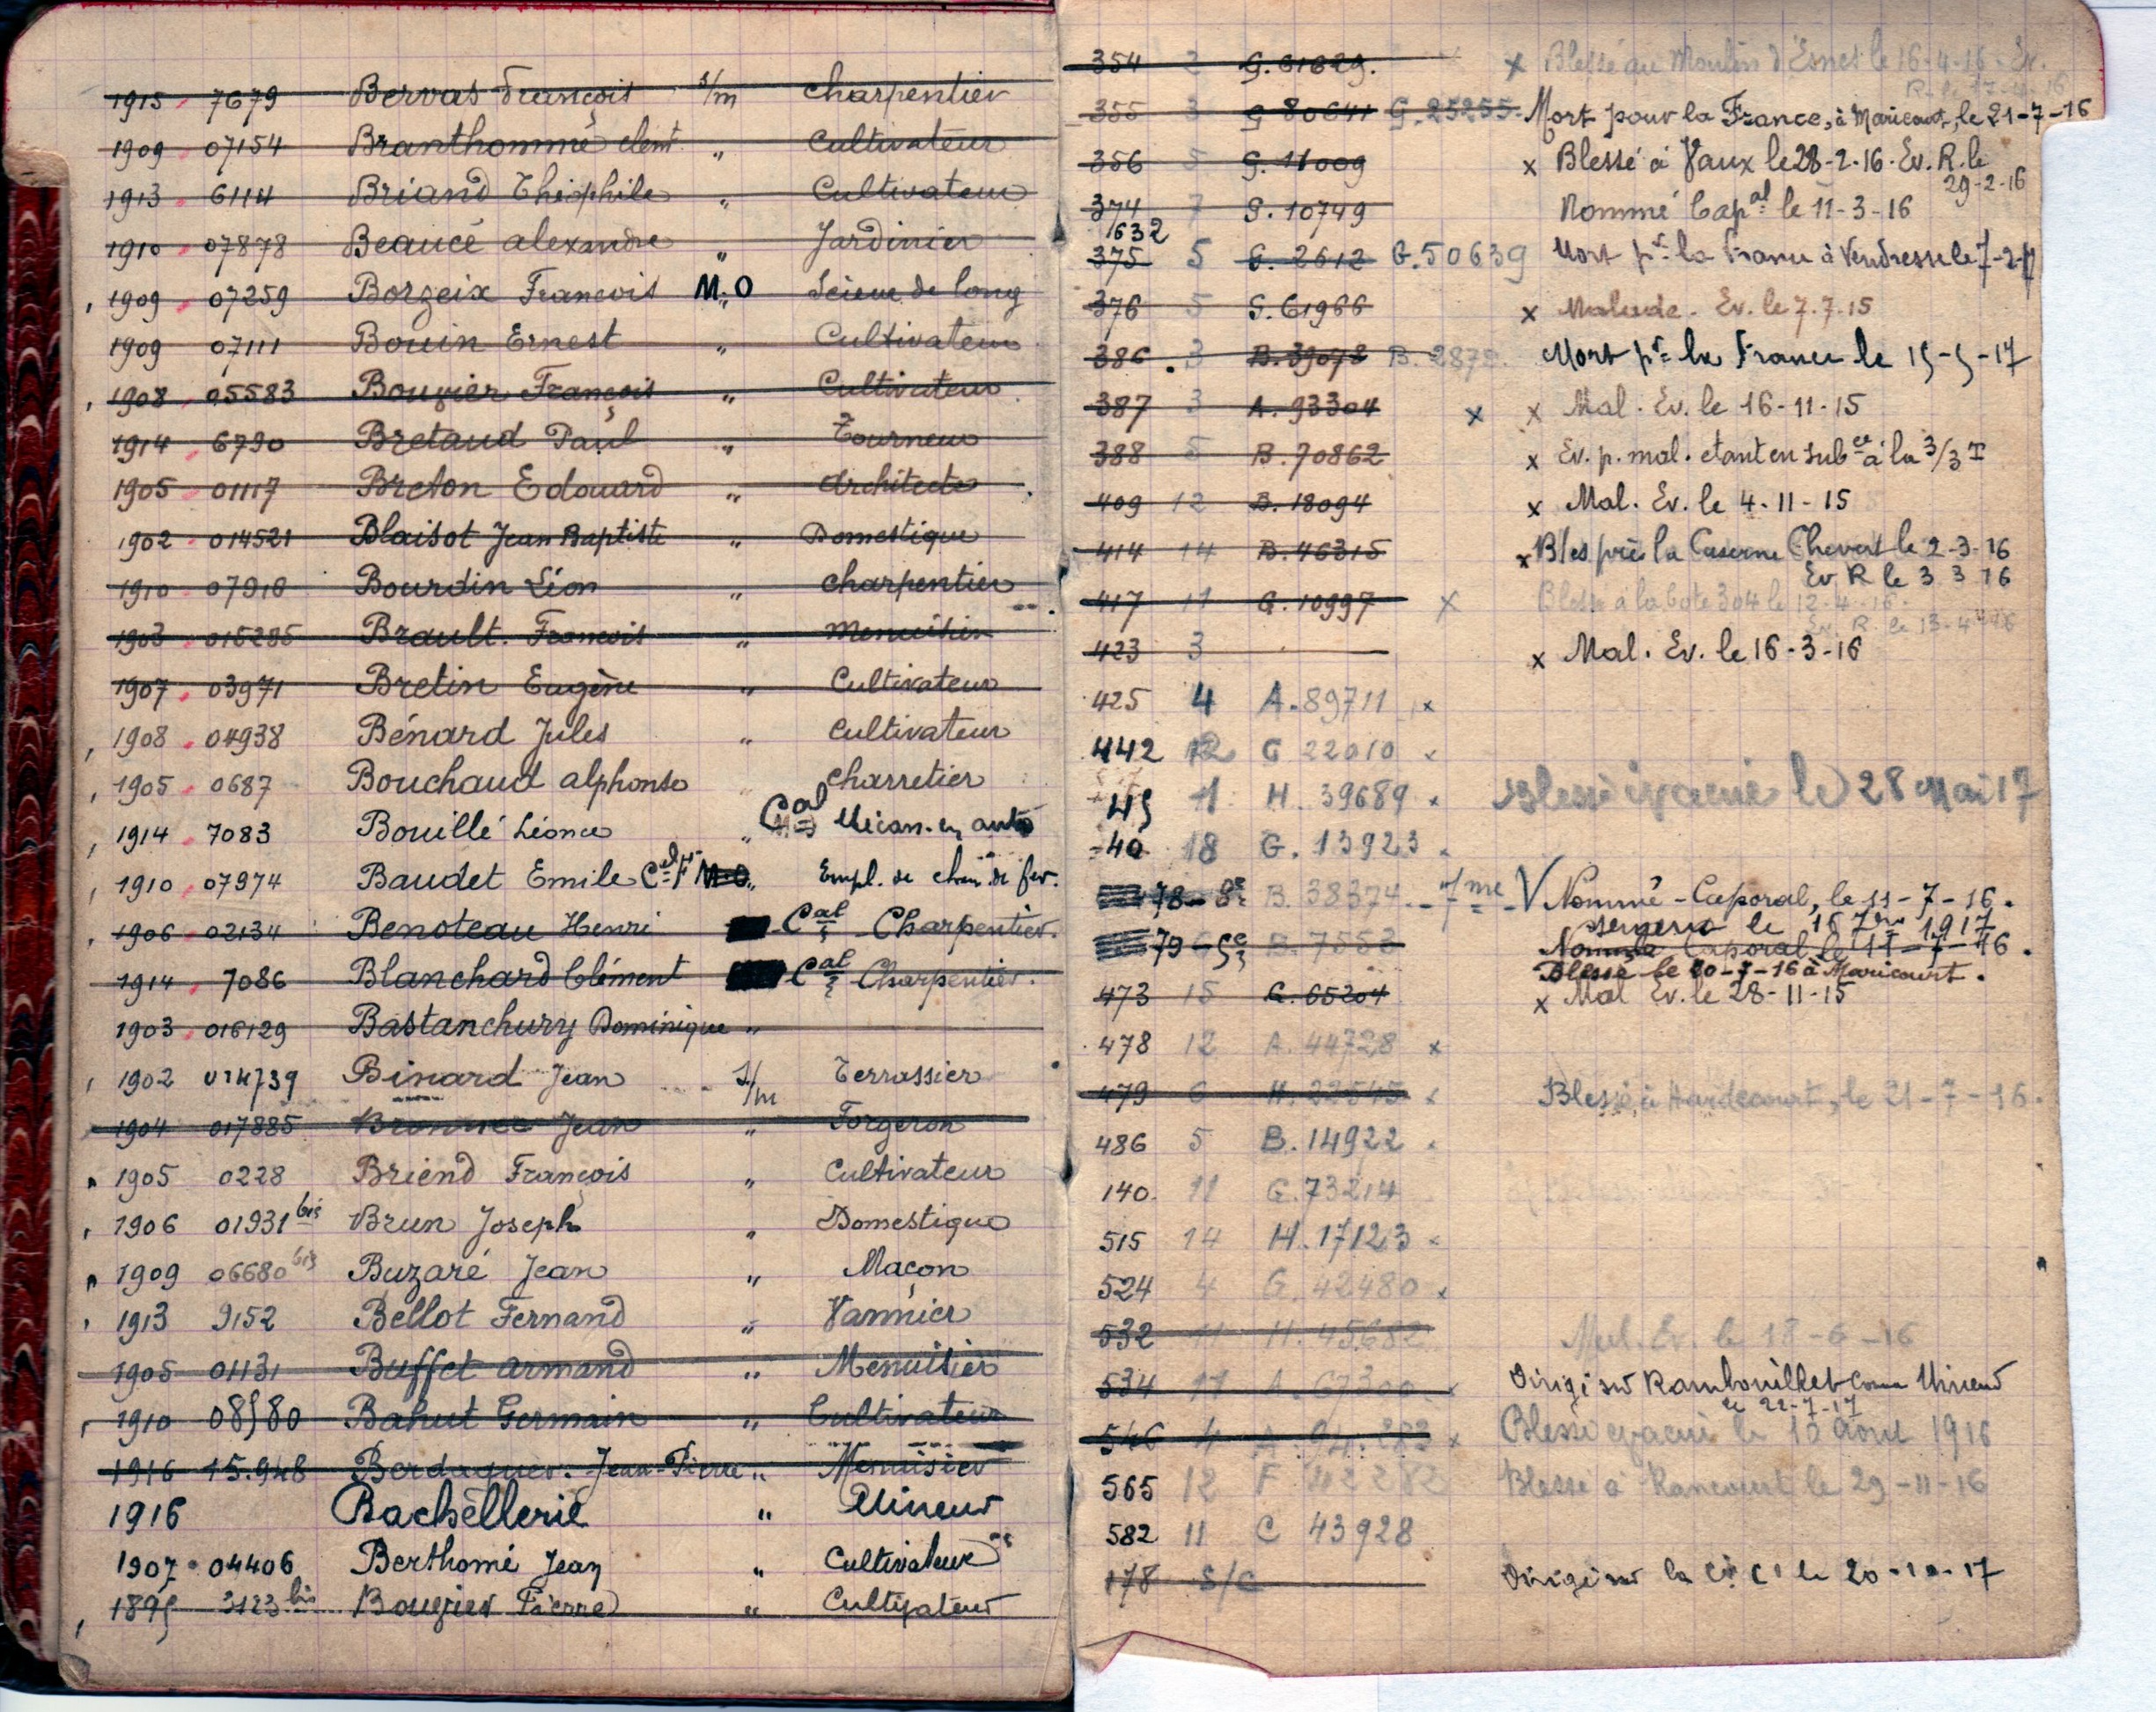 1915 7679 Bervas François s/m Charpentier
1909 07154 Branthomme Clemt " Cultivateur
1913 6114 Briand Théophile " Cultivateur
1910 07878 Beaucé alexandre " Jardinier
1909 07259 Borzeix François M.O Scieur de long
1909 07111 Bouin Ernest " Cultivateur
1908 05583 Bouvier François " Cultivateur
1914 6790 Bretaud Paul " Tourneur
1905 01117 Breton Edouard " Architecte
1902 014521 Blaisot Jean Baptiste " Domestique
1910 07910 Bourdin Léon " Charpentier
1903 015285 Brault François " Menuisier
1907 03971 Bretin Eugène " Cultivateur
1908 04938 Bénard Jules " Cultivateur
1905 0687 Bouchaud alphonse Charretier
1914 7083 Bouillé Léonce " Cal Mécan. en auto
1910 07974 Baudet Emile Cel F M.O " Empl. de chem. de fer.
1906 02134 Benoteau Henri Cal Charpentier.
1914 7086 Blanchard Clément Cal Charpentier.
1903 016129 Bastanchury Dominique "
1902 014739 Binard Jean s/m Terrassier
1904 017885 Jean " Forgeron
1905 0228 Briend François " Cultivateur
1906 01931 bis Brun Joseph " Domestique
1909 06680 bis Buzaré Jean " Maçon
1913 9152 Bellot Fernand " Vannier
1905 01131 Buffet armand " Menuisier
1910 08580 Bahut Germain " Cultivateur
1916 15.948 Berdaguer. Jean-Pierre " Menuisier
1916 Bachellerie " Mineur
1907 04406 Berthomé Jean " Cultivateur
1895 3123 bis Bouvier Pierre " Cultivateur
354 2 G. 61629. x Blessé au Moulin d'Esnes le 16-4-16. Ev.
R. le 17-4-16
355 3 G 80641 G. 25255. Mort pour la France, à Maricourt, le 21-7-16
356 5 G. 11009 x Blessé à Vaux le 28-2-16. Ev. R. le
29-2-16
374 7 G. 10749 Nommé Capal le 11-3-16
632
375 5 G. 2612 G. 50639 Mort pr la France à Vendresse le 7-2-17
376 5 G. 61966 x Malade. Ev. le 7.7.15
386 . 3 B. 39078 B. 2872. Mort pr la France le 15-5-17
387 3 A. 93304 x x Mal. Ev. le 16-11-15
388 5 B. 70862 x Ev. p. mal. etant en subce à la 3/3 T
409 12 B. 18094 x Mal. Ev. le 4-11-15
414 14 B. 46315 x Bles près la Caserne Chevert le 2-3-16
Ev R le 3 3 16
417 11 G. 10997 x Blessé à la Cote 304 le 12-4-16.
Ev. R. le 13-4-16
423 3 x Mal. Ev. le 16-3-16
425 4 A. 89711 x
442 12 G 22010 x
45 11 H. 39689 x Blessé évacué le 28 Mai 17
40 18 G. 13923
78 8e B. 38374 7me V Nommé Caporal, le 11-7-16.
sergent le 16 7bre 1917
79 5e B. 7553 Nommé Caporal le 11-7-16.
Blessé le 20-7-16 à Maricourt.
473 15 G. 65204 x Mal Ev. le 28-11-15
478 12 A. 44728 x
479 6 H. 22545 x Blessé à Hardecourt, le 21-7-16.
486 5 B. 14922
140. 11 G. 73214
515 14 H. 17123 x
524 4 G. 42480 x
532 11 H. 45682 Mal. Ev. le 18-6-16
534 11 A. 67300 x Dirigé sur Rambouillet comme Mineur
le 22-7-17
546 4 A. 94.282 x Blessé évacué le 10 Aout 1916
565 12 F 42282 Blessé à Rancourt le 29-11-16
582 11 C 43928
178 S/C Dirigé sur la Cie C1 le 20-10-17